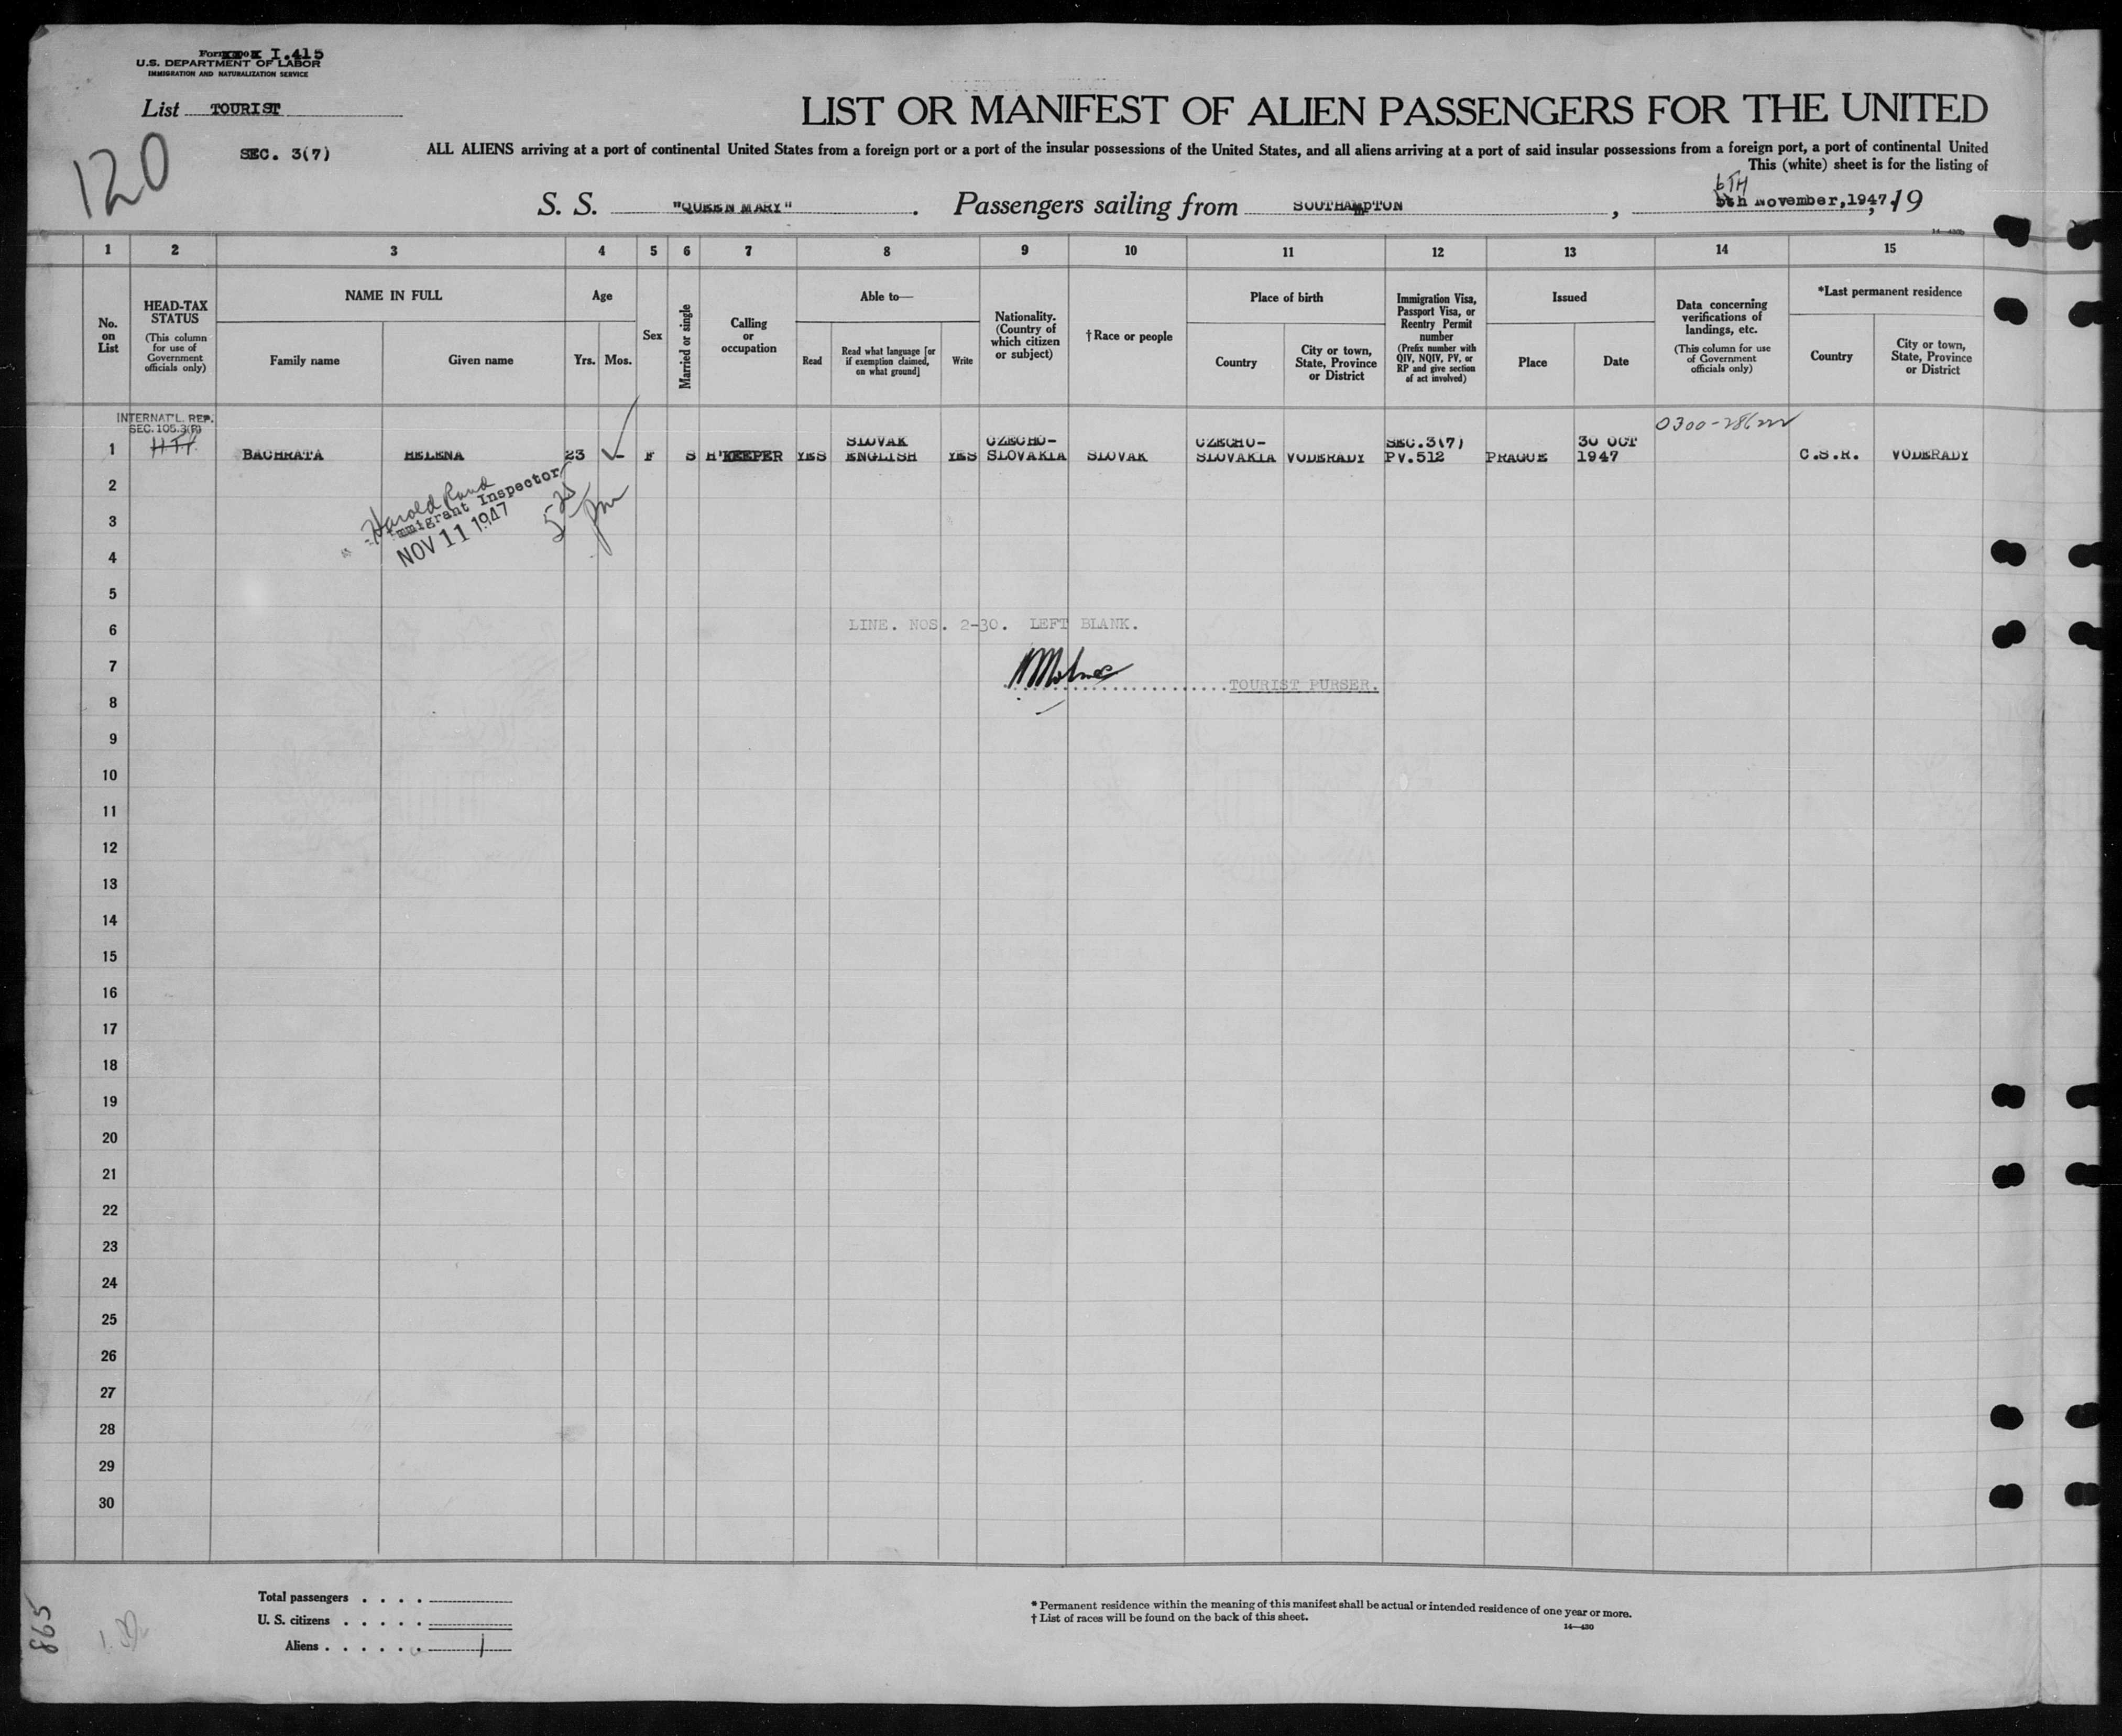 Form I.415
U.S. DEPARTMENT OF LABOR
IMMIGRATION AND NATURALIZATION SERVICE
List TOURIST
120
SEC. 3(7)
LIST OR MANIFEST OF ALIEN PASSENGERS FOR THE UNITED
ALL ALIENS arriving at a port of continental United States from a foreign port or a port of the insular possessions of the United States, and all aliens arriving at a port of said insular possessions from a foreign port, a port of continental United
This (white) sheet is for the listing of
6TH
S. S. "QUEEN MARY". Passengers sailing from SOUTHAMPTON, 5th November,1947, 19
14—430b
1 2 3 4 5 6 7 8 9 10 11 12 13 14 15
No. on List
HEAD-TAX STATUS
(This column for use of Government officials only)
NAME IN FULL
Family name
Given name
Age
Yrs. Mos.
Sex
Married or single
Calling or occupation
Able to—
Read
Read what language [or if exemption claimed, on what ground]
Write
Nationality. (Country of which citizen or subject)
†Race or people
Place of birth
Country
City or town, State, Province or District
Immigration Visa, Passport Visa, or Reentry Permit number
(Prefix number with QIV, NQIV, PV, or RP and give section of act involved)
Issued
Place
Date
Data concerning verifications of landings, etc.
(This column for use of Government officials only)
*Last permanent residence
Country
City or town, State, Province or District
INTERNAT'L. REP.
SEC. 105.3(P)
SLOVAK CZECHO- CZECHO- SEC.3(7) 30 OCT
1 BACHRATA HELENA 23 - F S H'KEEPER YES ENGLISH YES SLOVAKIA SLOVAK SLOVAKIA VODERADY PV.512 PRAGUE 1947 C.S.R. VODERADY
2
Harold Rand
Immigrant Inspector
NOV 11 1947
3
4
5
6 LINE. NOS. 2-30. LEFT BLANK.
7
TOURIST PURSER.
8
9
10
11
12
13
14
15
16
17
18
19
20
21
22
23
24
25
26
27
28
29
30
Total passengers . . . .
U. S. citizens . . . . .
Aliens . . . . . . 1
* Permanent residence within the meaning of this manifest shall be actual or intended residence of one year or more.
† List of races will be found on the back of this sheet.
14—430
865